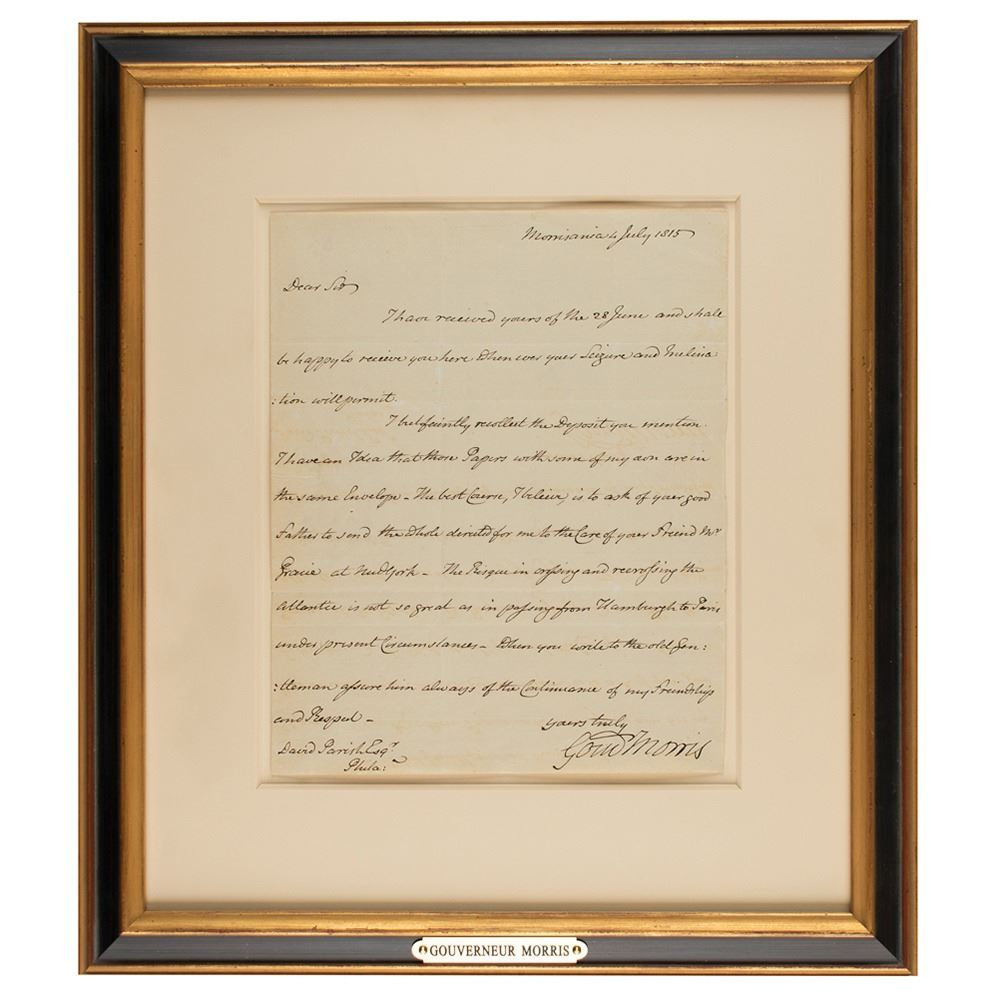 Morrisania 4 July 1815
Dear Sir
I have received yours of the 28 June and shall
be happy to receive you here When ever your Leizure and Inclina
:tion will permit.
I but faintly recollect the Deposit you mention.
I have an Idea that those Papers with some of my own are in
the same Envelope – The best Course, I believe, is to ask of your good
Father to send the Whole directed for me to the Care of your Friend Mr.
Gracie at New York – The Risque in crossing and recrossing the
Atlantic is not so great as in passing from Hamburgh to Paris
under present Circumstances – When you write to the old Gen:
:tleman assure him always of the Continuance of my Friendship
and Respect –
yours truly
Gouv Morris
David Parish Esqr.
Phila:
GOUVERNEUR MORRIS